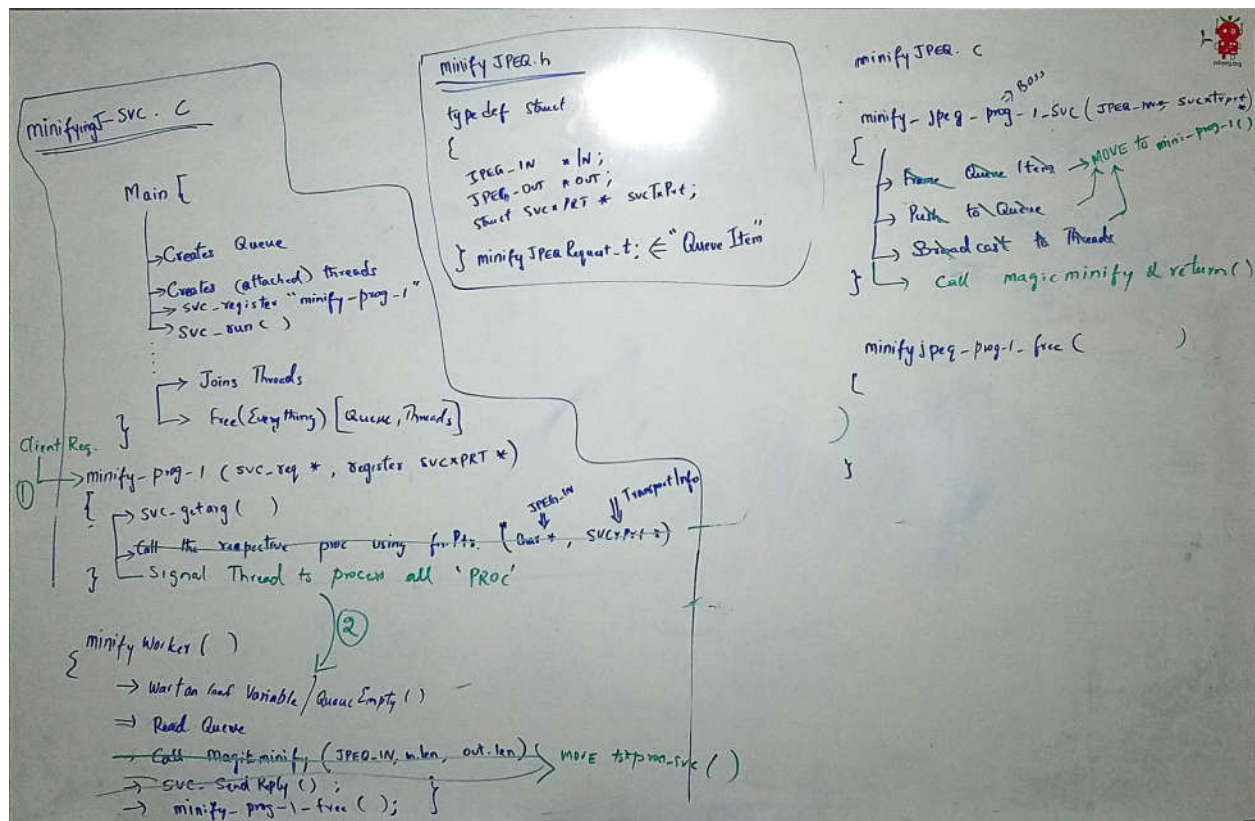 minifyingJ-SVC. C
Main {
→ Creates Queue
→ Creates (attached) threads
→ svc-register "minify-prog-1"
→ svc-run( )
→ Joins Threads
→ Free(Everything) [Queue, Threads]
}
Client Req.
① → minify-prog-1 (svc-req *, register SVCXPRT *)
{ → svc-getarg( )
JPEG-IN
Transport Info
→ Call the respective proc using fn Ptr. (Char *, SVCXPrt *)
} Signal Thread to process all 'PROC'
②
minify Worker ( )
{
→ Wait on Variable / Queue Empty ( )
⇒ Read Queue
→ Call Magicminify (JPEG-IN, in.len, out.len) MOVE to ( )
→ SVC-Send Reply ( ) ;
→ minify-prog-1-free ( ); }
minify JPEG.h
typedef struct
{
JPEG-IN * IN;
JPEG-OUT * OUT;
struct SVCXPRT * svcTxPrt;
} minifyJPEGRequest_t; ← "Queue Item"
minifyJPEG. C
→ Boss
minify-jpeg-prog-1-SVC (JPEG- SVCXTprt)
{
→ Frame Queue Item → MOVE to mini-prog-1()
→ Push to Queue
→ Broadcast to Threads
} → Call magicminify & return()
minifyjpeg-prog-1-free ( )
{
}